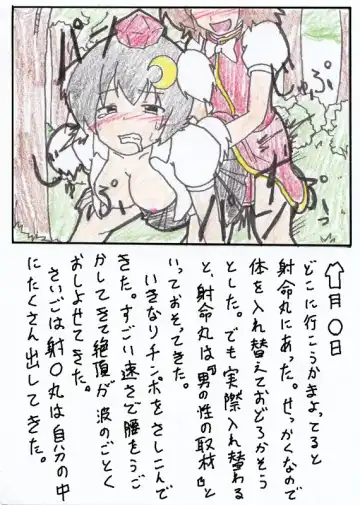 パン
パン
じゅぷ
じゅぷ
⇧月〇日
どこに行こうかまよってると
射命丸にあった。せっかくなので
体を入れ替えておどろかそう
とした。でも実際入れ替わる
と、射命丸は『男の性の取材』と
いっておそってきた。
いきなりチンポをさしこんで
きた。すごい速さで腰をうご
かしてきて絶頂が波のごとく
おしよせてきた。
さいごは射〇丸は自分の中
にたくさん出してきた。